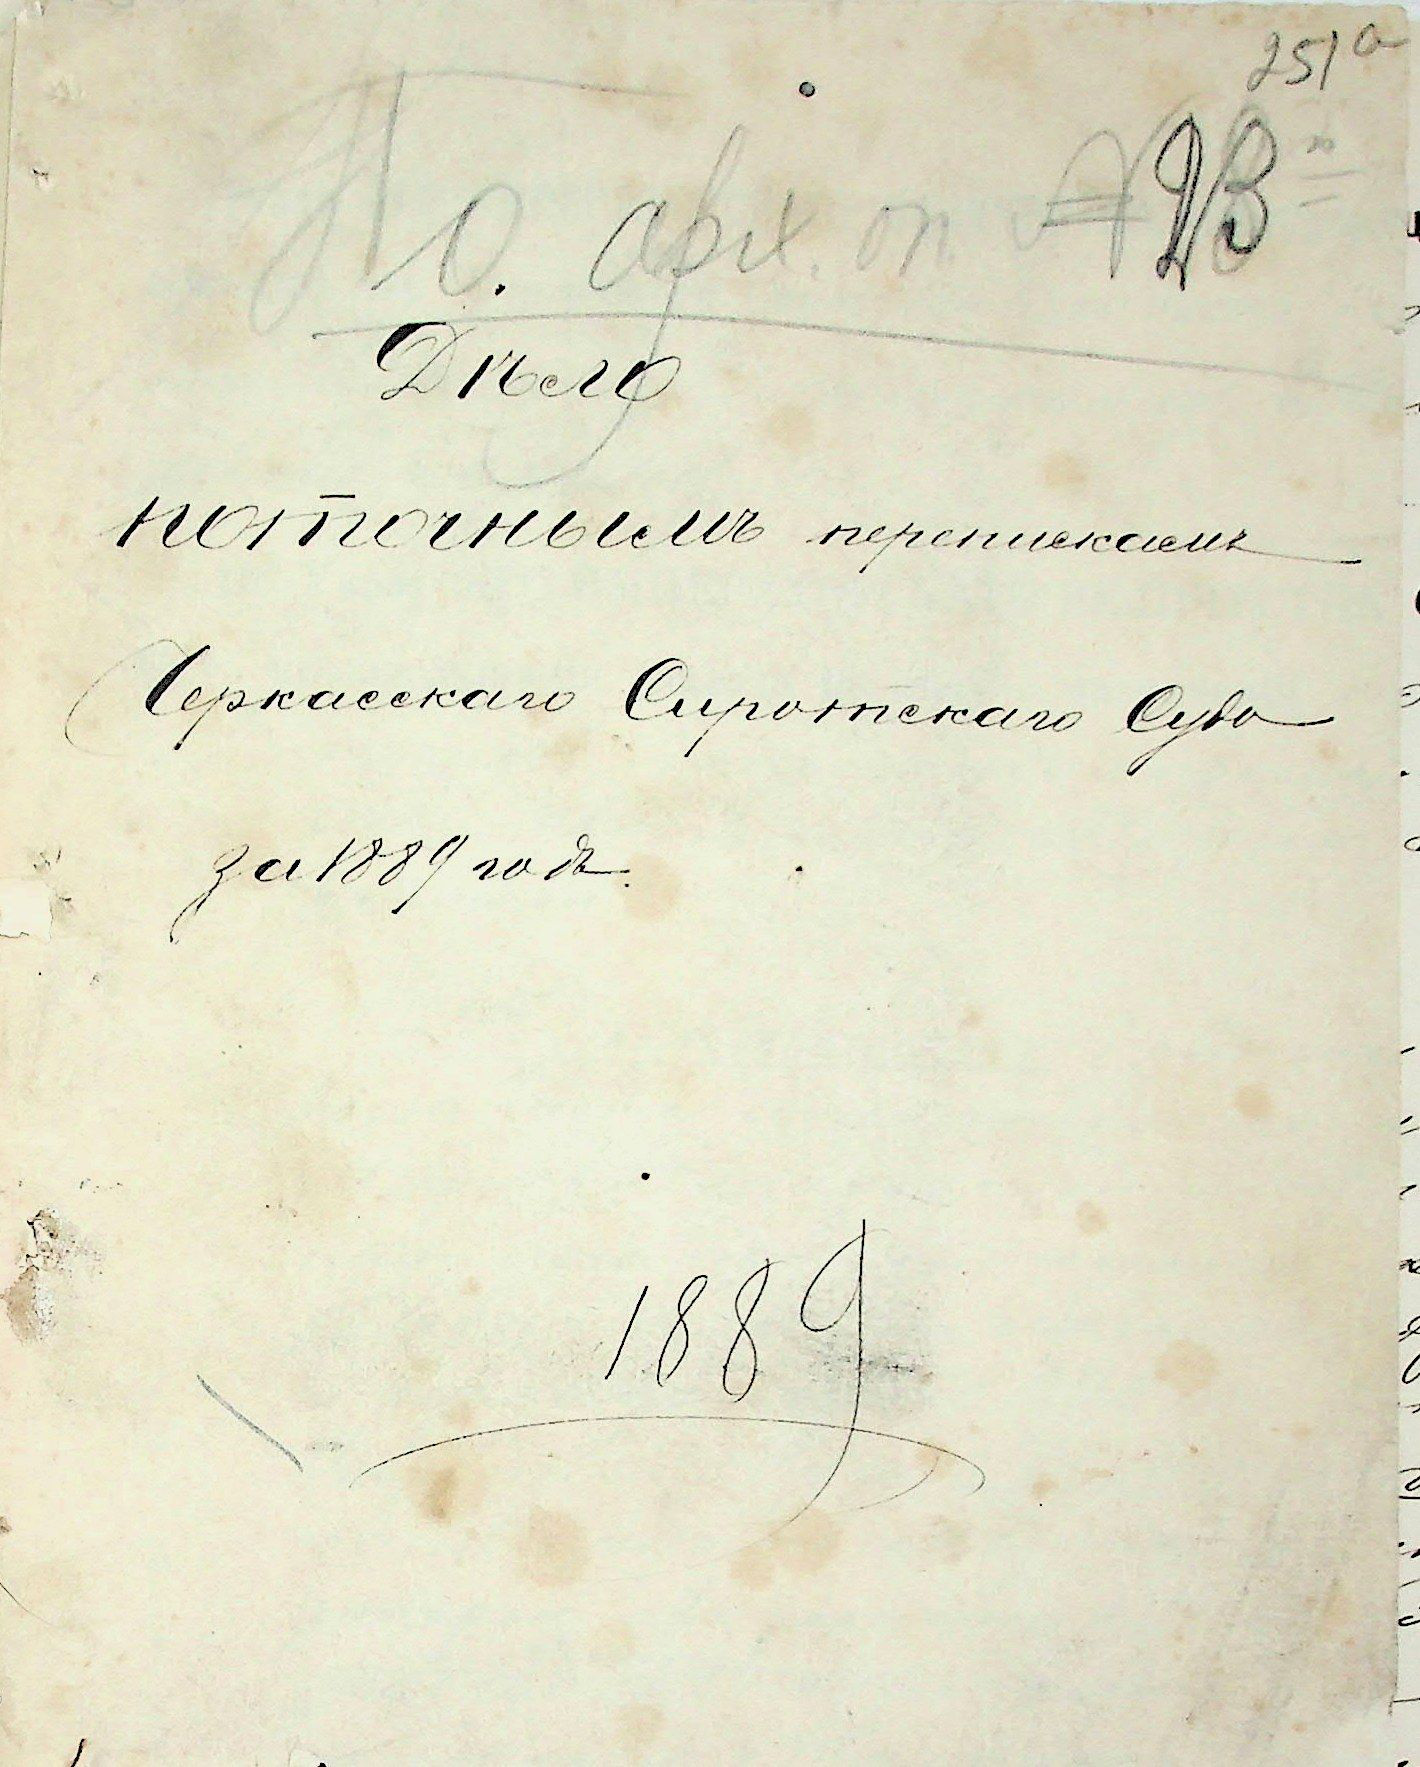 251а
По арх. оп № 23
Дѣло
поточнымъ перепискамъ
Черкасскаго Сиротскаго Суда
за 1889 годъ.
1889